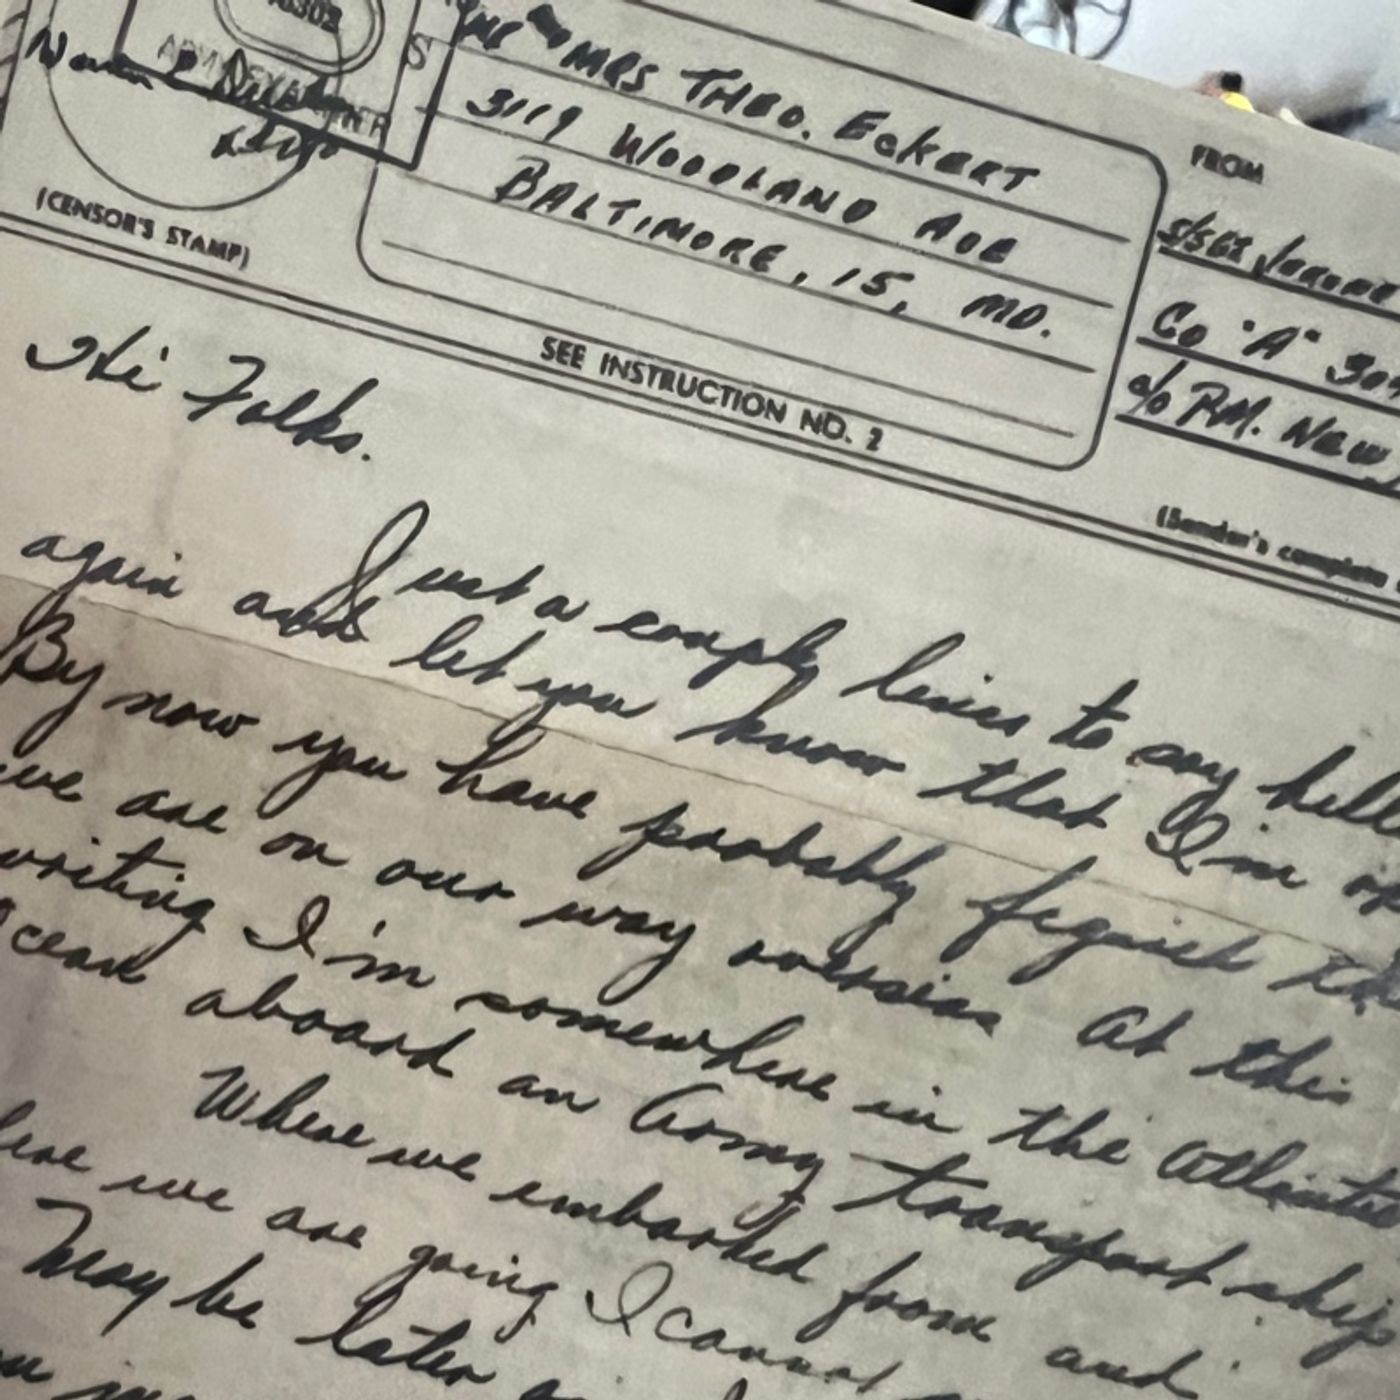 MR MRS THEO. ECKERT
3119 WOODLAND AVE
BALTIMORE, 15, MD.
(CENSOR'S STAMP)
SEE INSTRUCTION NO. 2
FROM
Co "A" 30
c/o P.M. NEW
(Sender's complete
Hi Folks.
Just a couple lines to say hello
again and let you know that I'm
By now you have probably figured
we are on our way overseas At this
writing I'm somewhere in the Atlantic
Ocean aboard an Army transport ship
Where we embarked from and
where we are going I cannot
May be later